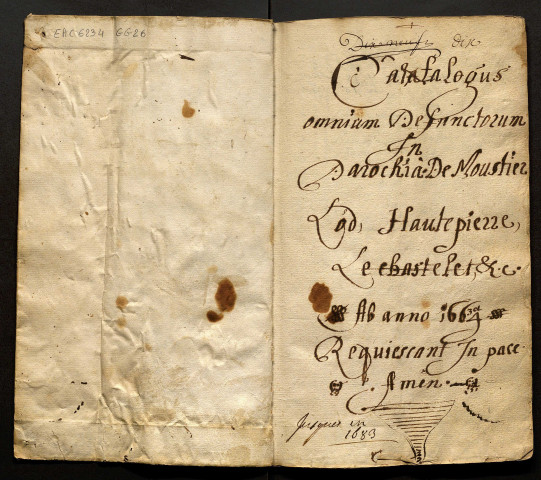 EAC 6234 GG26
Dix-neufe dix
Catalogus
omnium Defunctorum
In
Parochiâ De Moustier
Lod, Hautepierre,
Le chastelet, &c.
Ab anno 1664
Requiescant In pace
Amen.
Jusques en
1683